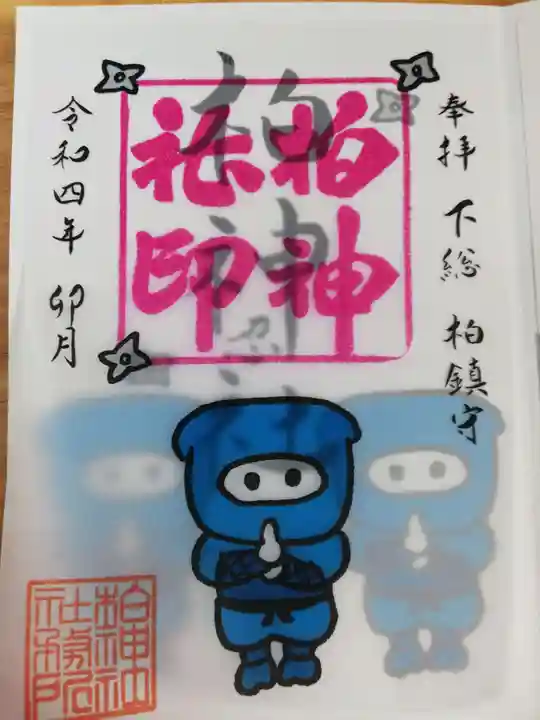 奉拝 下総 柏鎮守
柏神
社印
柏神社
令和四年 卯月
柏神社
社務所